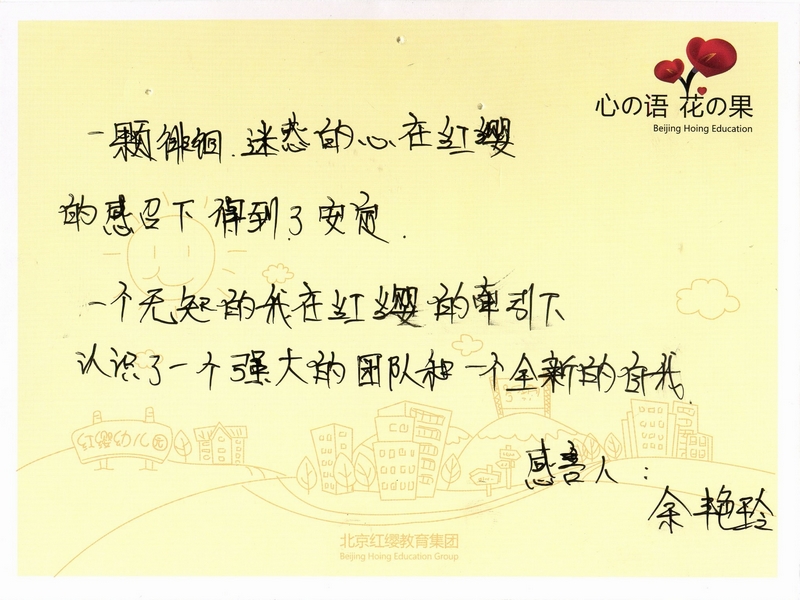 心の语 花の果
Beijing Hoing Education
一颗徘徊.迷茫的心在红缨
的感召下得到了安定.
一个无知的我在红缨的牵引下
认识了一个强大的团队和一个全新的自我.
感言人:
余艳玲
红缨幼儿园
北京红缨教育集团
Beijing Hoing Education Group